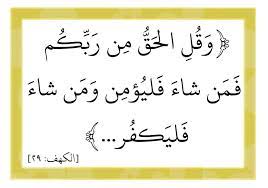 ﴿وَقُلِ الحَقُّ مِن رَبِّكُم
فَمَن شاءَ فَليُؤمِن وَمَن شاءَ
فَليَكفُر...﴾
[الكهف: ٢٩]